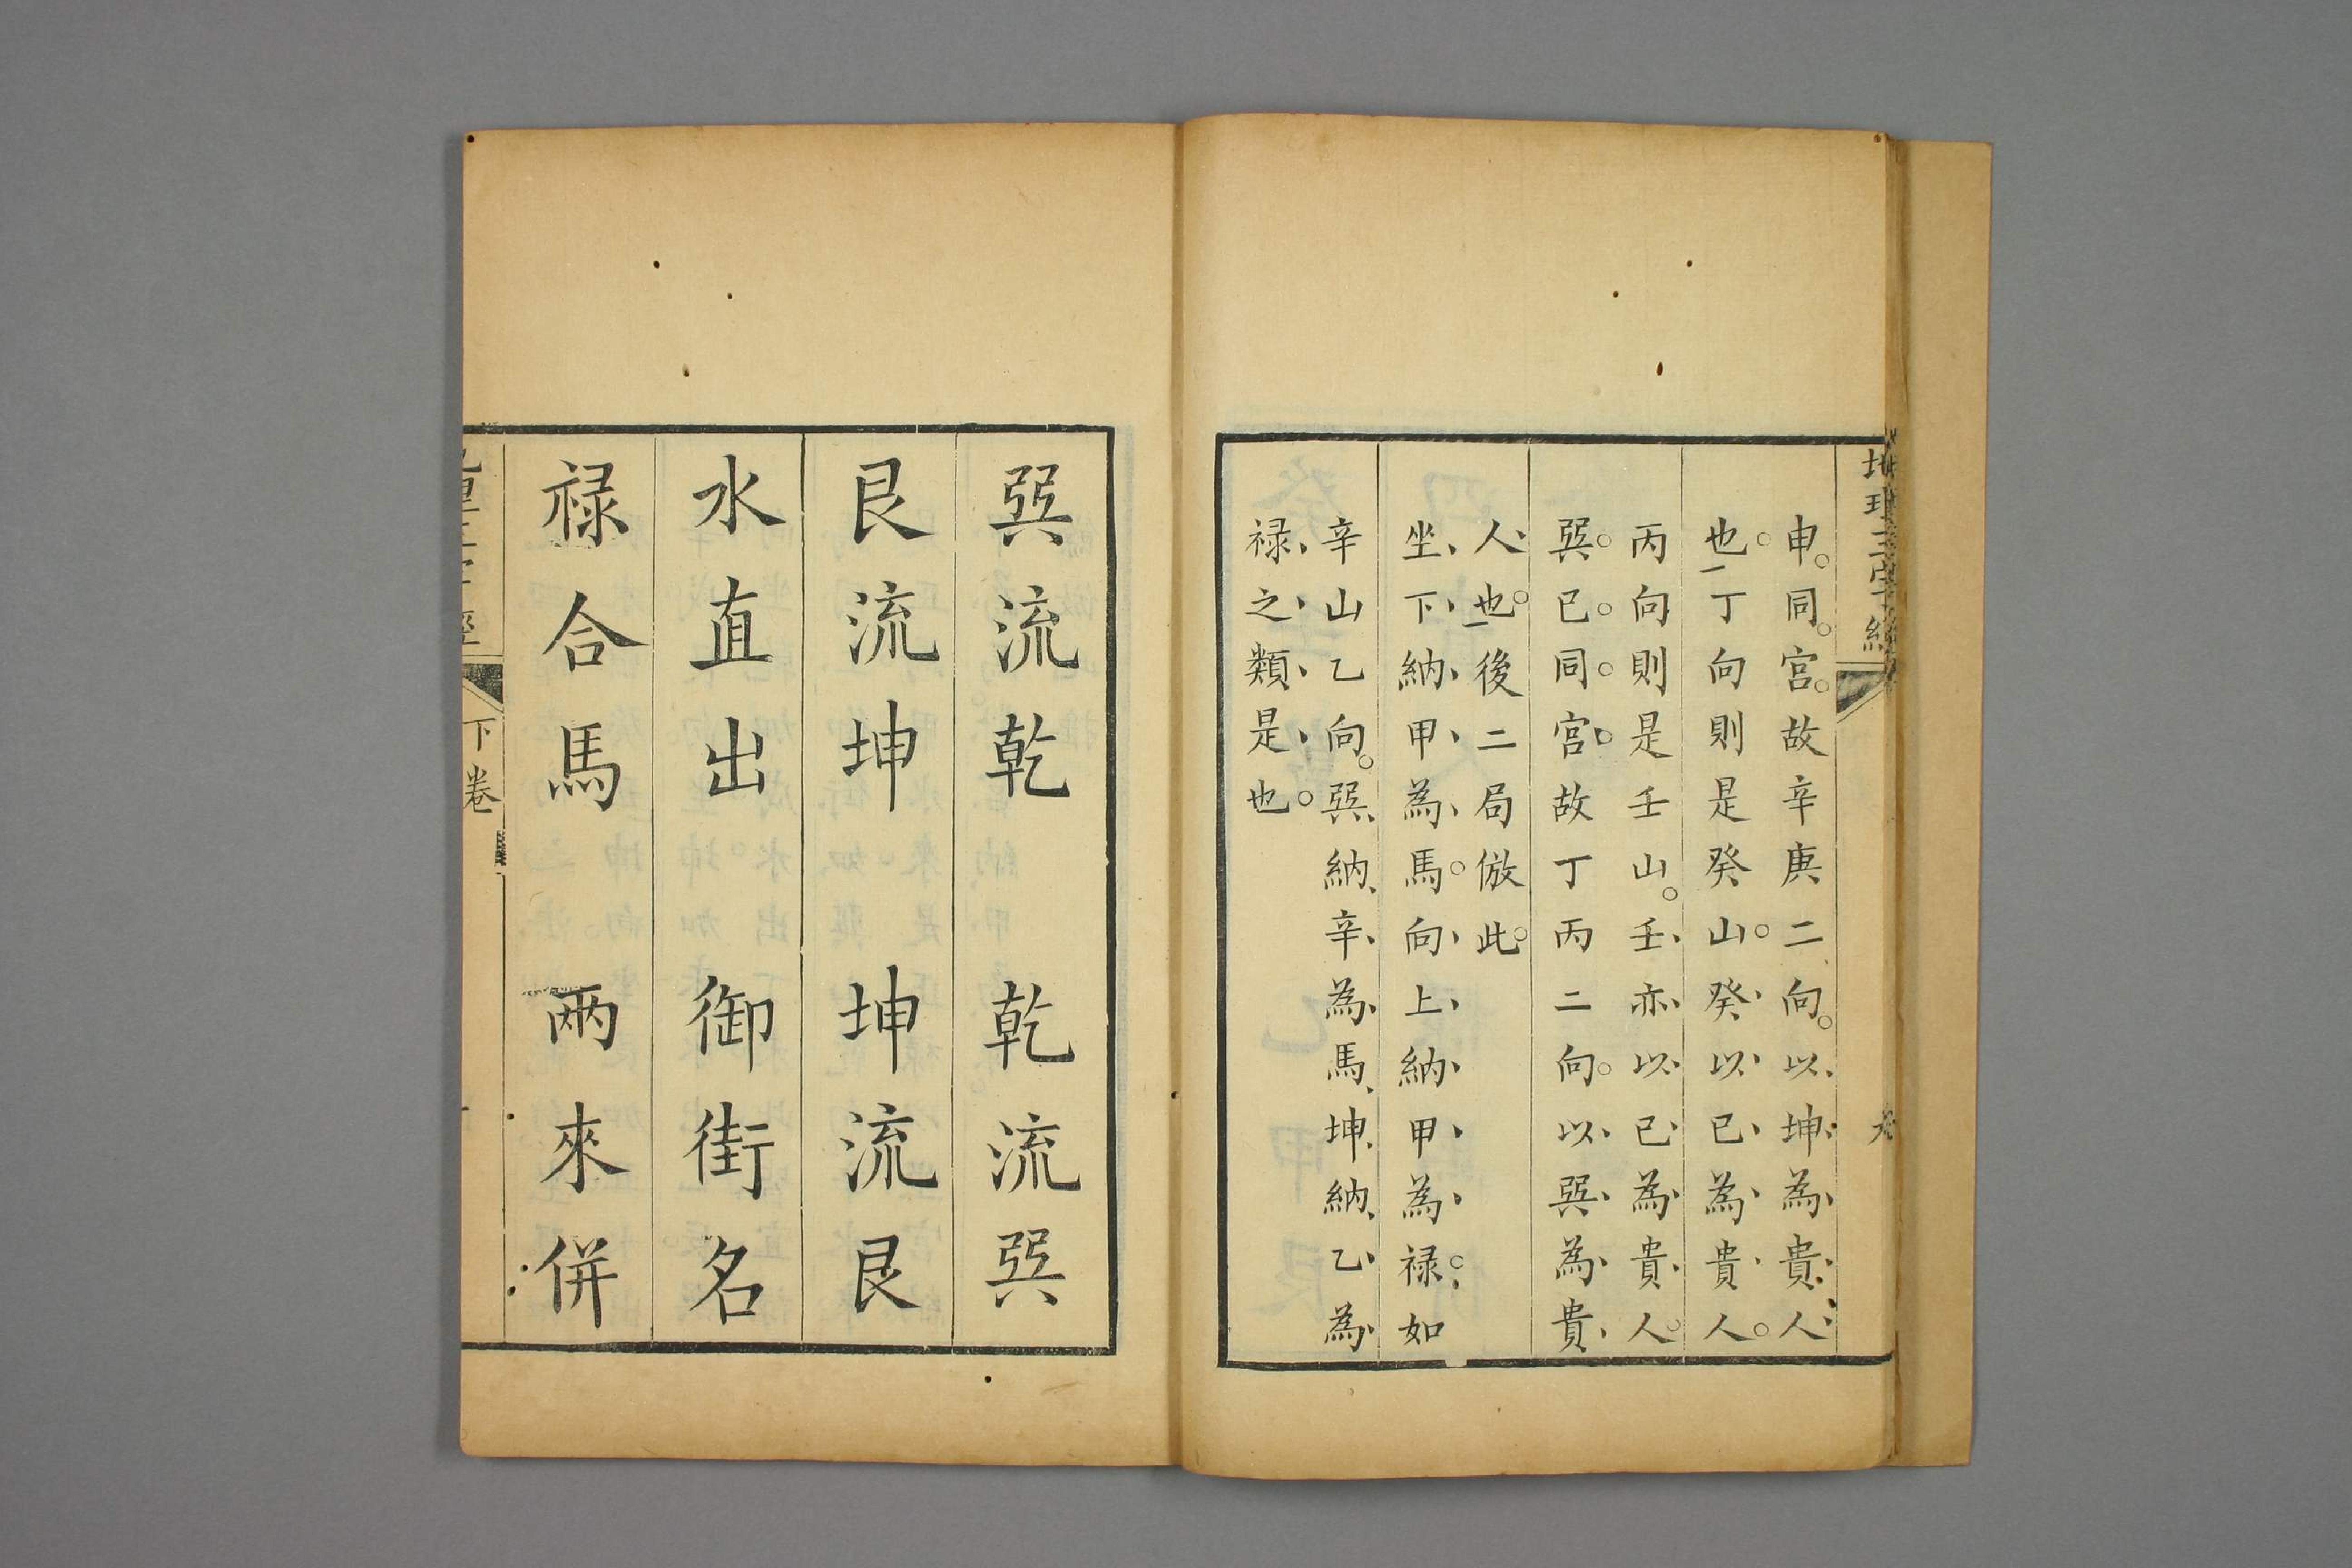 地理三字經
申同宮故辛庚二向以坤為貴人
也丁向則是癸山癸以巳為貴人
丙向則是壬山壬亦以巳為貴人
巽巳同宮故丁丙二向以巽為貴
人也後二局倣此
坐下納甲為馬向上納甲為禄如
辛山乙向巽納辛為馬坤納乙為
禄之類是也
巽流乾 乾流巽
艮流坤 坤流艮
水直出 御街名
禄合馬 兩來併
下卷